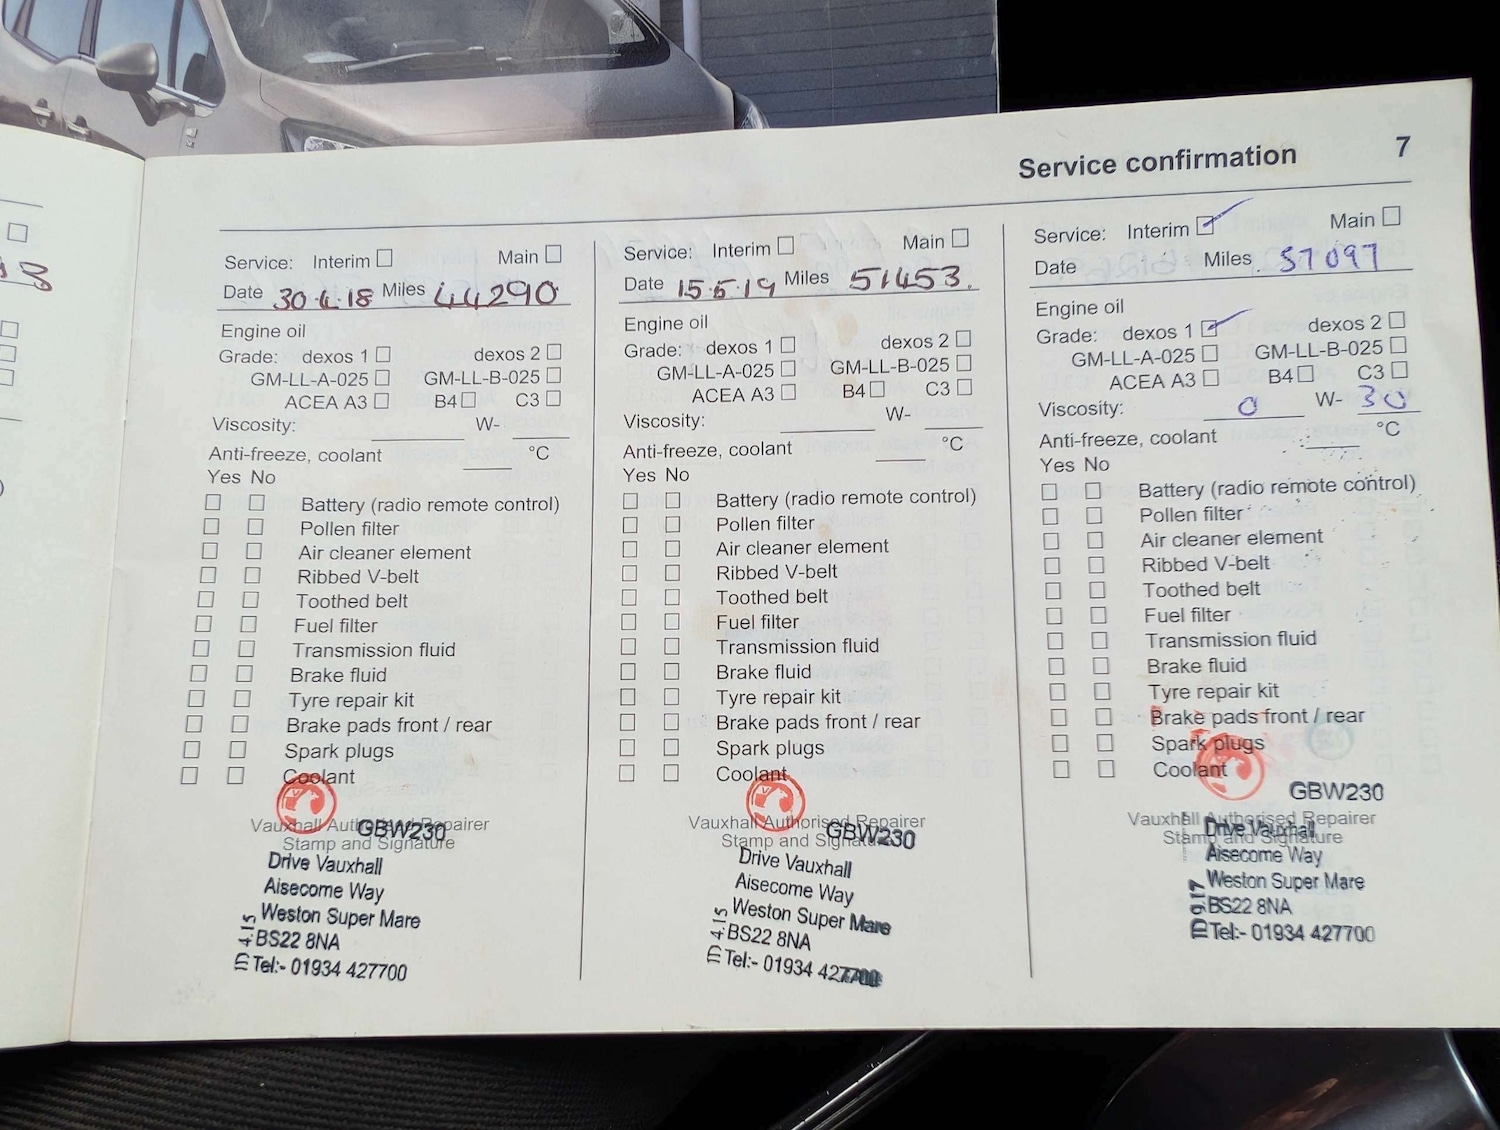 Service confirmation 7
Service: Interim Main
Date 30.4.18 Miles 44290
Engine oil
Grade: dexos 1 dexos 2
GM-LL-A-025 GM-LL-B-025
ACEA A3 B4 C3
Viscosity: W-
Anti-freeze, coolant °C
Yes No
Battery (radio remote control)
Pollen filter
Air cleaner element
Ribbed V-belt
Toothed belt
Fuel filter
Transmission fluid
Brake fluid
Tyre repair kit
Brake pads front / rear
Spark plugs
Coolant
Vauxhall Authorised Repairer
Stamp and Signature
GBW230
Drive Vauxhall
Aisecome Way
Weston Super Mare
BS22 8NA
Tel:- 01934 427700
Service: Interim Main
Date 15.5.19 Miles 51453.
Engine oil
Grade: dexos 1 dexos 2
GM-LL-A-025 GM-LL-B-025
ACEA A3 B4 C3
Viscosity: W-
Anti-freeze, coolant °C
Yes No
Battery (radio remote control)
Pollen filter
Air cleaner element
Ribbed V-belt
Toothed belt
Fuel filter
Transmission fluid
Brake fluid
Tyre repair kit
Brake pads front / rear
Spark plugs
Coolant
Vauxhall Authorised Repairer
Stamp and Signature
GBW230
Drive Vauxhall
Aisecome Way
Weston Super Mare
BS22 8NA
Tel:- 01934 427700
Service: Interim Main
Date Miles 57097
Engine oil
Grade: dexos 1 dexos 2
GM-LL-A-025 GM-LL-B-025
ACEA A3 B4 C3
Viscosity: 0 W- 30
Anti-freeze, coolant °C
Yes No
Battery (radio remote control)
Pollen filter
Air cleaner element
Ribbed V-belt
Toothed belt
Fuel filter
Transmission fluid
Brake fluid
Tyre repair kit
Brake pads front / rear
Spark plugs
Coolant
GBW230
Vauxhall Authorised Repairer
Stamp and Signature
Drive Vauxhall
Aisecome Way
Weston Super Mare
BS22 8NA
Tel:- 01934 427700